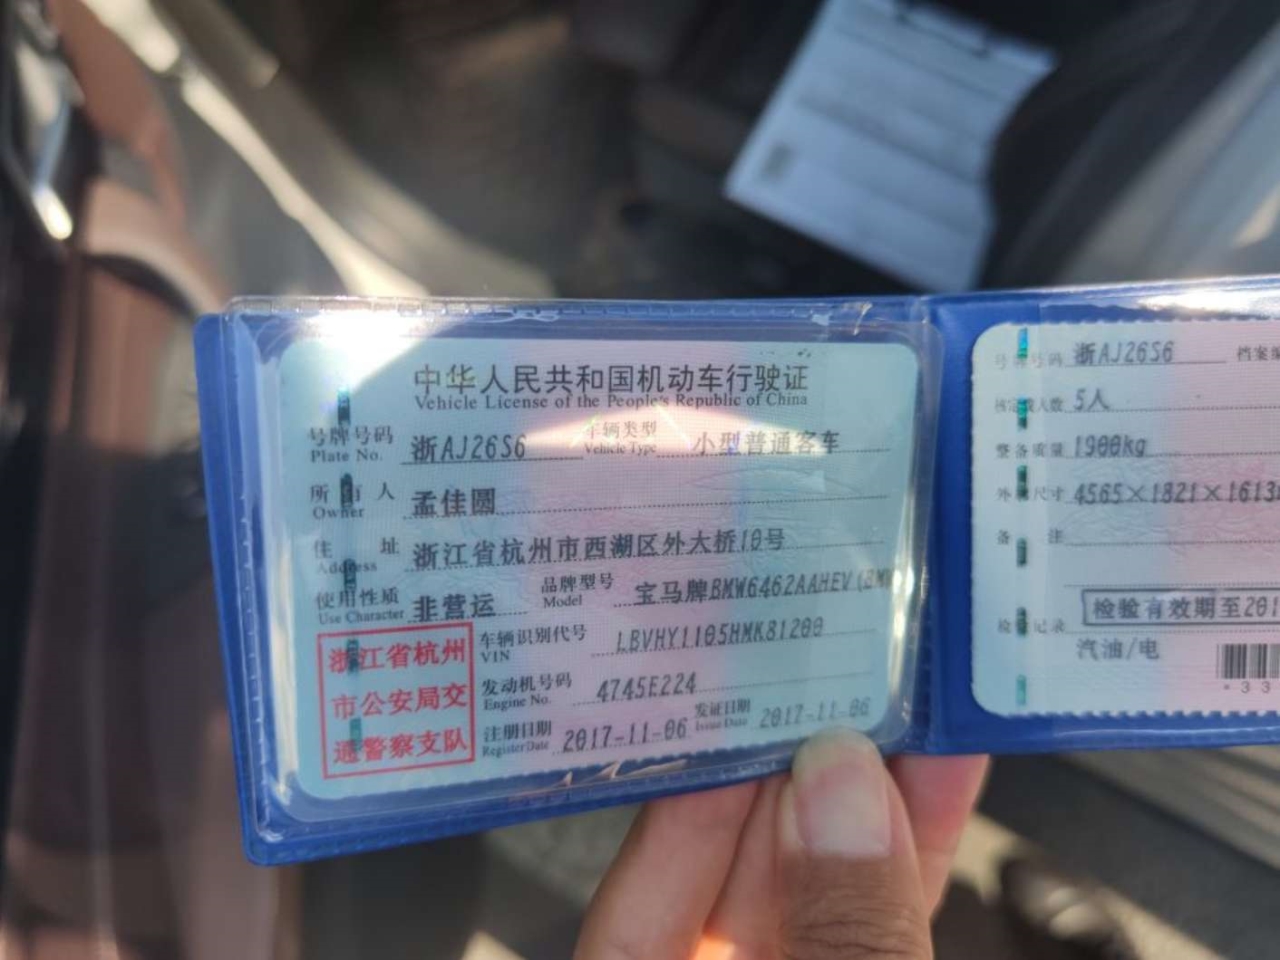 中华人民共和国机动车行驶证
Vehicle License of the People's Republic of China
号牌号码 浙AJ26S6 车辆类型 小型普通客车
Plate No. Vehicle Type
所有人 孟佳圆
Owner
住址 浙江省杭州市西湖区外大桥10号
Address
使用性质 非营运 品牌型号 宝马牌BMW6462AAHEV(BM
Use Character Model
浙江省杭州
市公安局交
通警察支队
车辆识别代号 LBVHY1105HMK81200
VIN
发动机号码 4745E224
Engine No.
注册日期 2017-11-06 发证日期 2017-11-06
Register Date Issue Date
号牌号码 浙AJ26S6 档案编
核定载人数 5人
整备质量 1900kg
外廓尺寸 4565×1821×1613
备注
检验记录 检验有效期至201
汽油/电
*33